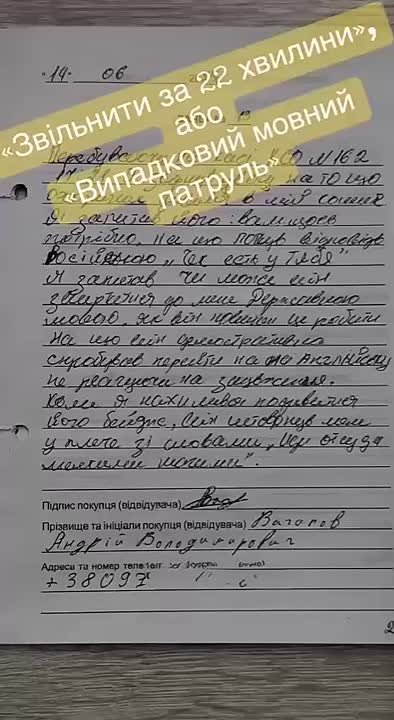 «Звільнити за 22 хвилини»,
або
«Випадковий мовний
патруль»
"14" 06
Перебуваючи СО №162
на то що
в мій
Я запитав його: вам щось
потрібно, на що почув відповідь
російською „Чек есть у тебя"
Я запитав чи може він
звертатися до мене Державною
мовою, як він повинен це робити
на що він демонстративно
спробував перейти на Англійську
не реагуючи на зауваження.
Коли я нахилився подивитися
його бейдж, він штовхнув мене
у плече зі словами „Иди отсуда
мелкими шагами".
Підпис покупця (відвідувача)
Прізвище та ініціали покупця (відвідувача) Вагапов
Андрій Володимирович
Адреса та номер
+38097
2